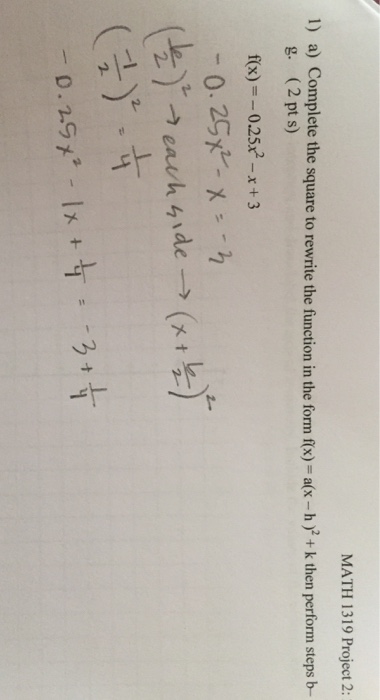 MATH 1319 Project 2:
1) a) Complete the square to rewrite the function in the form f(x) = a(x – h)² + k then perform steps b–
g. (2 pts)
f(x) = – 0.25x² – x + 3
-0.25x² - x = -3
(b/2)² → each side → (x + b/2)²
(-1/2)² = 1/4
-0.25x² - 1x + 1/4 = -3 + 1/4